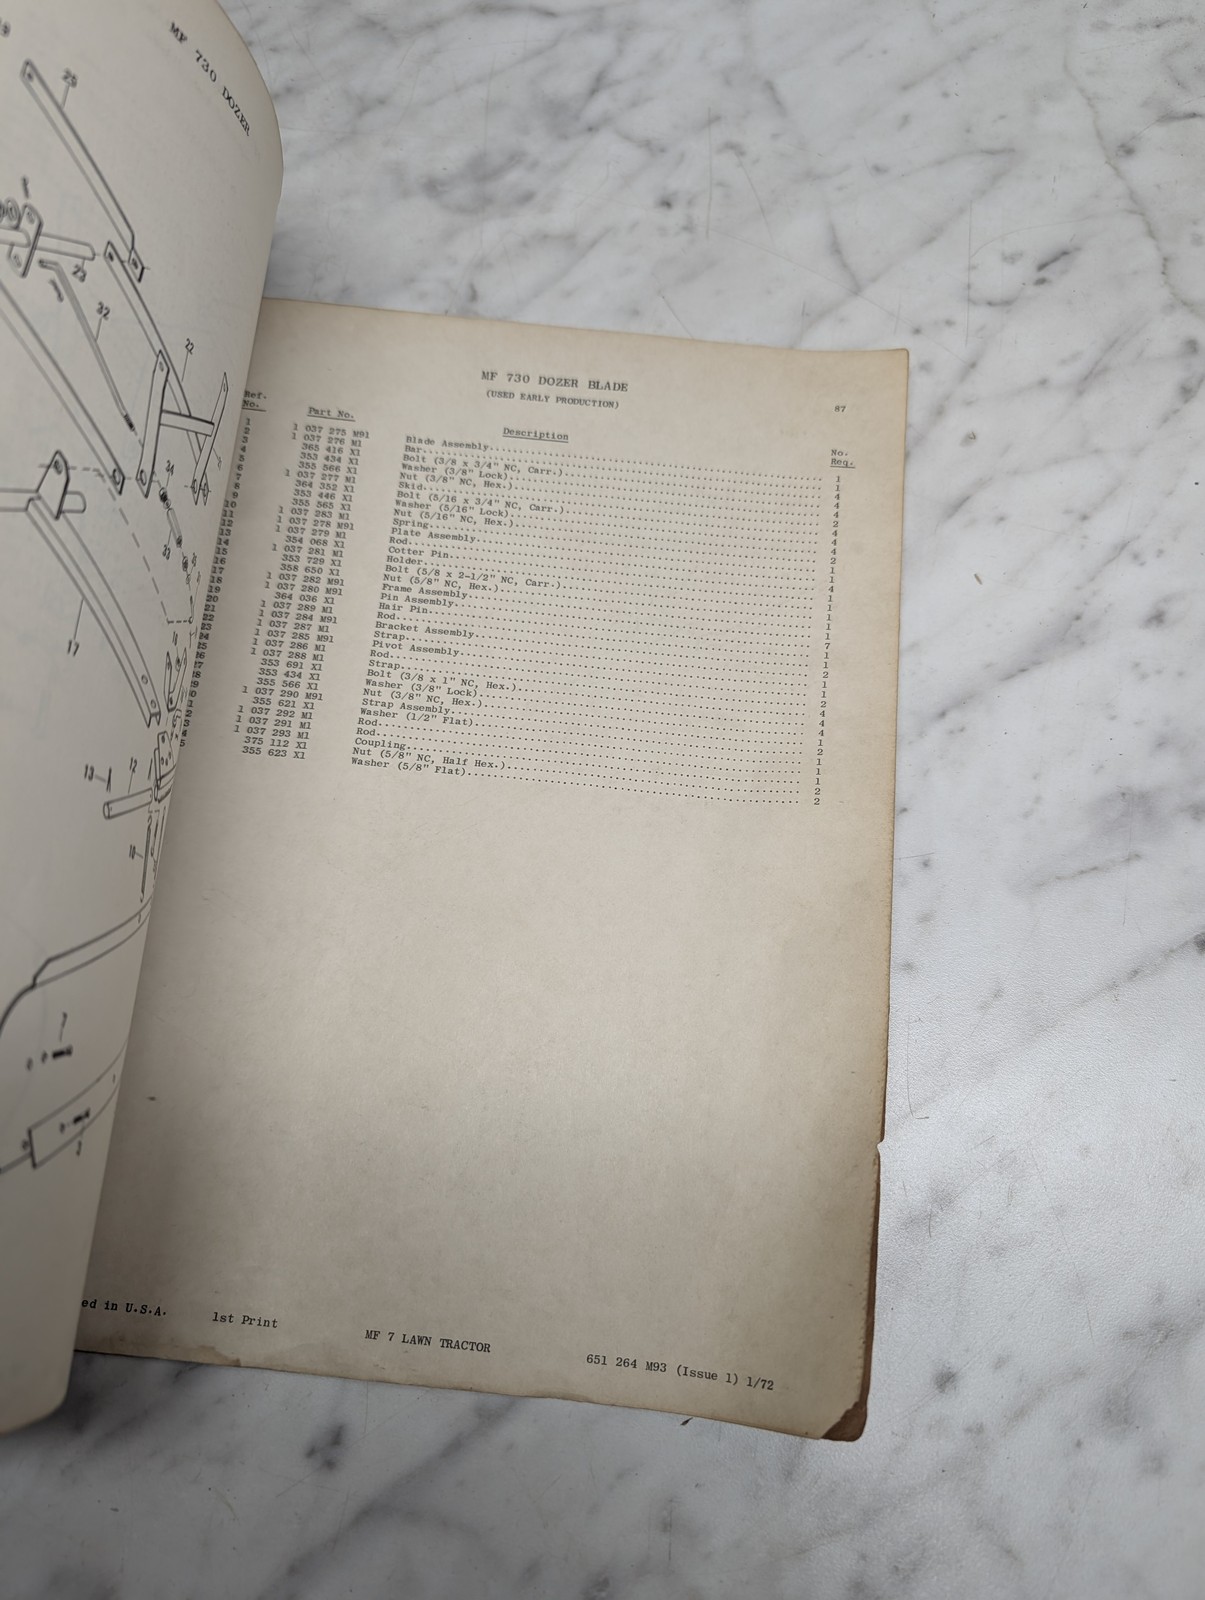 MF 730 DOZER
29
23
32
22
34
33
17
13
12
10
7
MF 730 DOZER BLADE
(USED EARLY PRODUCTION)
87
Ref. No. Part No. Description No. Req.
1 1 037 275 M91 Blade Assembly 1
2 1 037 276 M1 Bar 1
3 365 416 X1 Bolt (3/8 x 3/4" NC, Carr.) 4
4 353 434 X1 Washer (3/8" Lock) 4
5 355 566 X1 Nut (3/8" NC, Hex.) 4
6 1 037 277 M1 Skid 2
7 364 352 X1 Bolt (5/16 x 3/4" NC, Carr.) 4
8 353 446 X1 Washer (5/16" Lock) 4
9 355 565 X1 Nut (5/16" NC, Hex.) 4
10 1 037 283 M1 Spring 2
11 1 037 278 M91 Plate Assembly 1
12 1 037 279 M1 Rod 1
13 354 068 X1 Cotter Pin 4
14 1 037 281 M1 Holder 1
15 353 729 X1 Bolt (5/8 x 2-1/2" NC, Carr.) 1
16 358 650 X1 Nut (5/8" NC, Hex.) 1
17 1 037 282 M91 Frame Assembly 1
18 1 037 280 M91 Pin Assembly 1
19 364 036 X1 Hair Pin 7
20 1 037 289 M1 Rod 1
21 1 037 284 M91 Bracket Assembly 1
22 1 037 287 M1 Strap 2
23 1 037 285 M91 Pivot Assembly 1
24 1 037 286 M1 Rod 1
5 1 037 288 M1 Strap 2
6 353 691 X1 Bolt (3/8 x 1" NC, Hex.) 4
7 353 434 X1 Washer (3/8" Lock) 4
8 355 566 X1 Nut (3/8" NC, Hex.) 4
9 1 037 290 M91 Strap Assembly 1
0 355 621 X1 Washer (1/2" Flat) 2
1 1 037 292 M1 Rod 1
2 1 037 291 M1 Rod 1
3 1 037 293 M1 Coupling 1
4 375 112 X1 Nut (5/8" NC, Half Hex.) 2
5 355 623 X1 Washer (5/8" Flat) 2
ed in U.S.A. 1st Print MF 7 LAWN TRACTOR 651 264 M93 (Issue 1) 1/72